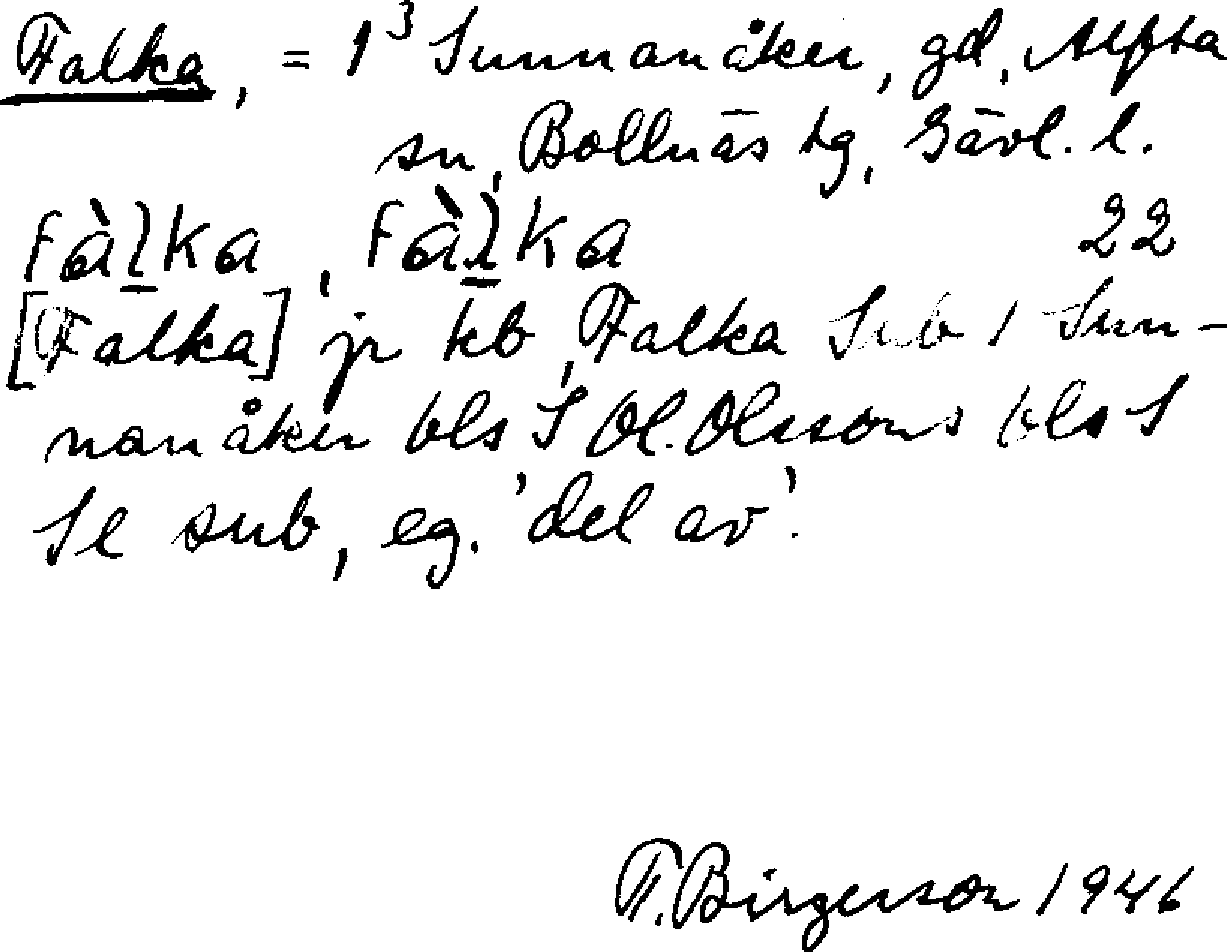 Falka, = 1³ Sunnanåker, gd, Alfta
sn, Bollnäs tg, Gävl. l.
fàl̲ka, fàl̲ka 22
[Falka] jr kb, Falka Sub 1 Sun-
nanåker bls S Ol. Olssons bls S
Se sub, eg. 'del av'.
F. Birgerson 1946